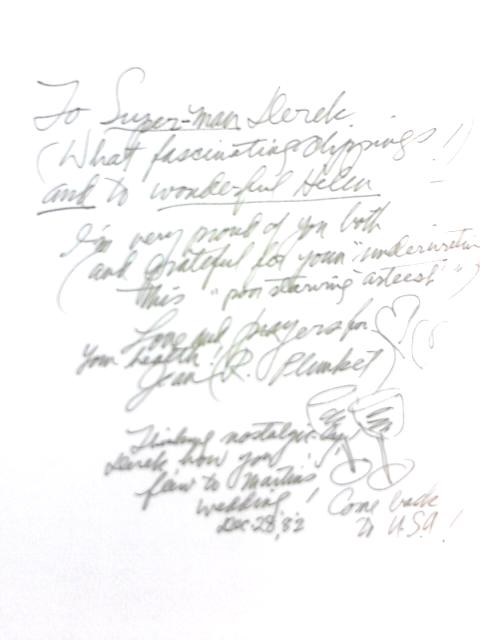 To Super-man Derek
(What fascinating clippings!)
and to wonderful Helen
I'm very proud of you both
(and grateful for your "underwritin
this "poor starving asteest")
Love and prayers for
your health!
Jean R. Plunket
Thinking nostalgic-ly
Derek how you
flew to Martin's
wedding!
Dec 28, '82
Come back
to U.S.A!